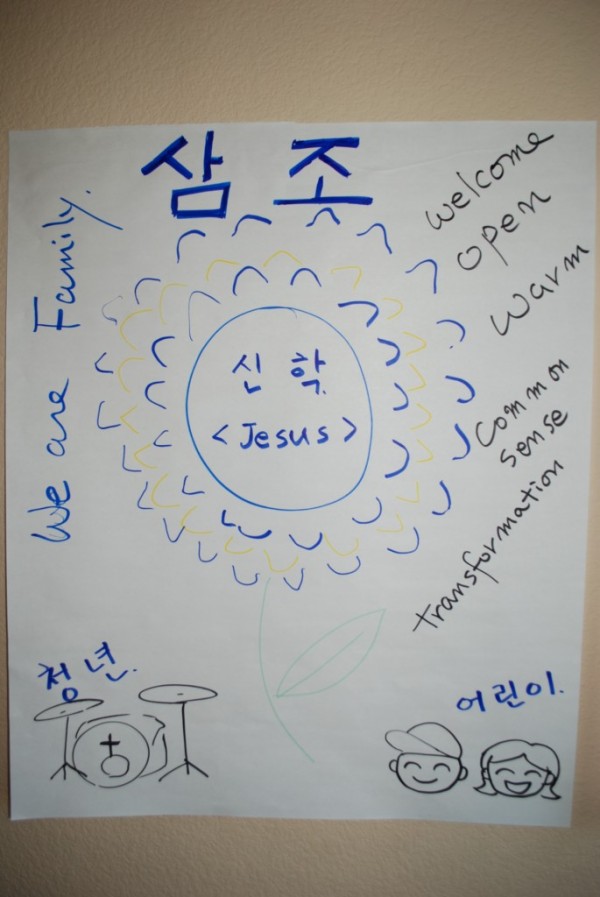 삼 조
We are Family.
welcome
open
warm
common
sense
transformation
신 학.
< Jesus >
청년.
어린이.